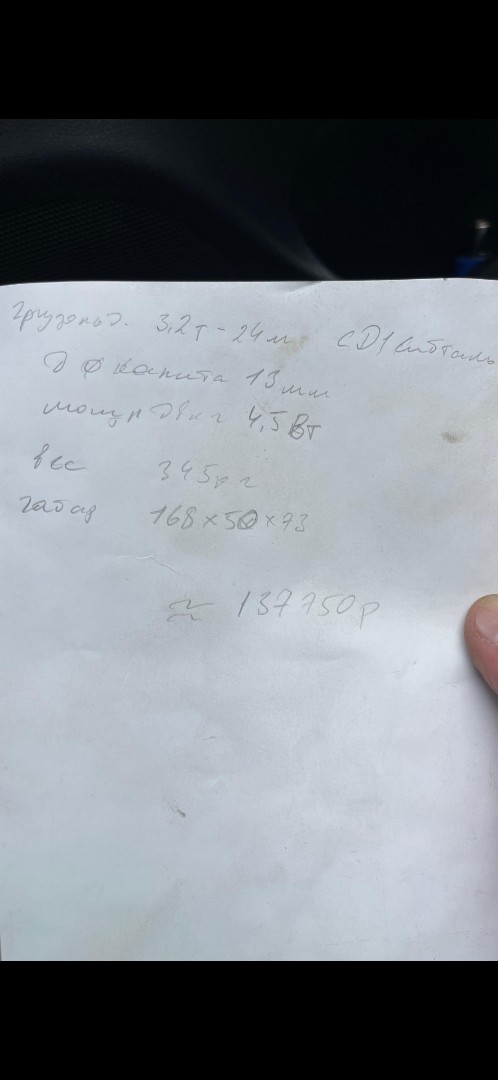 грузопод. 3,2т - 24м CD1 Сибталь
ø каната 13мм
мощн двиг 4,5 Вт
вес 345кг
габар 168×50×73
≈ 137750р